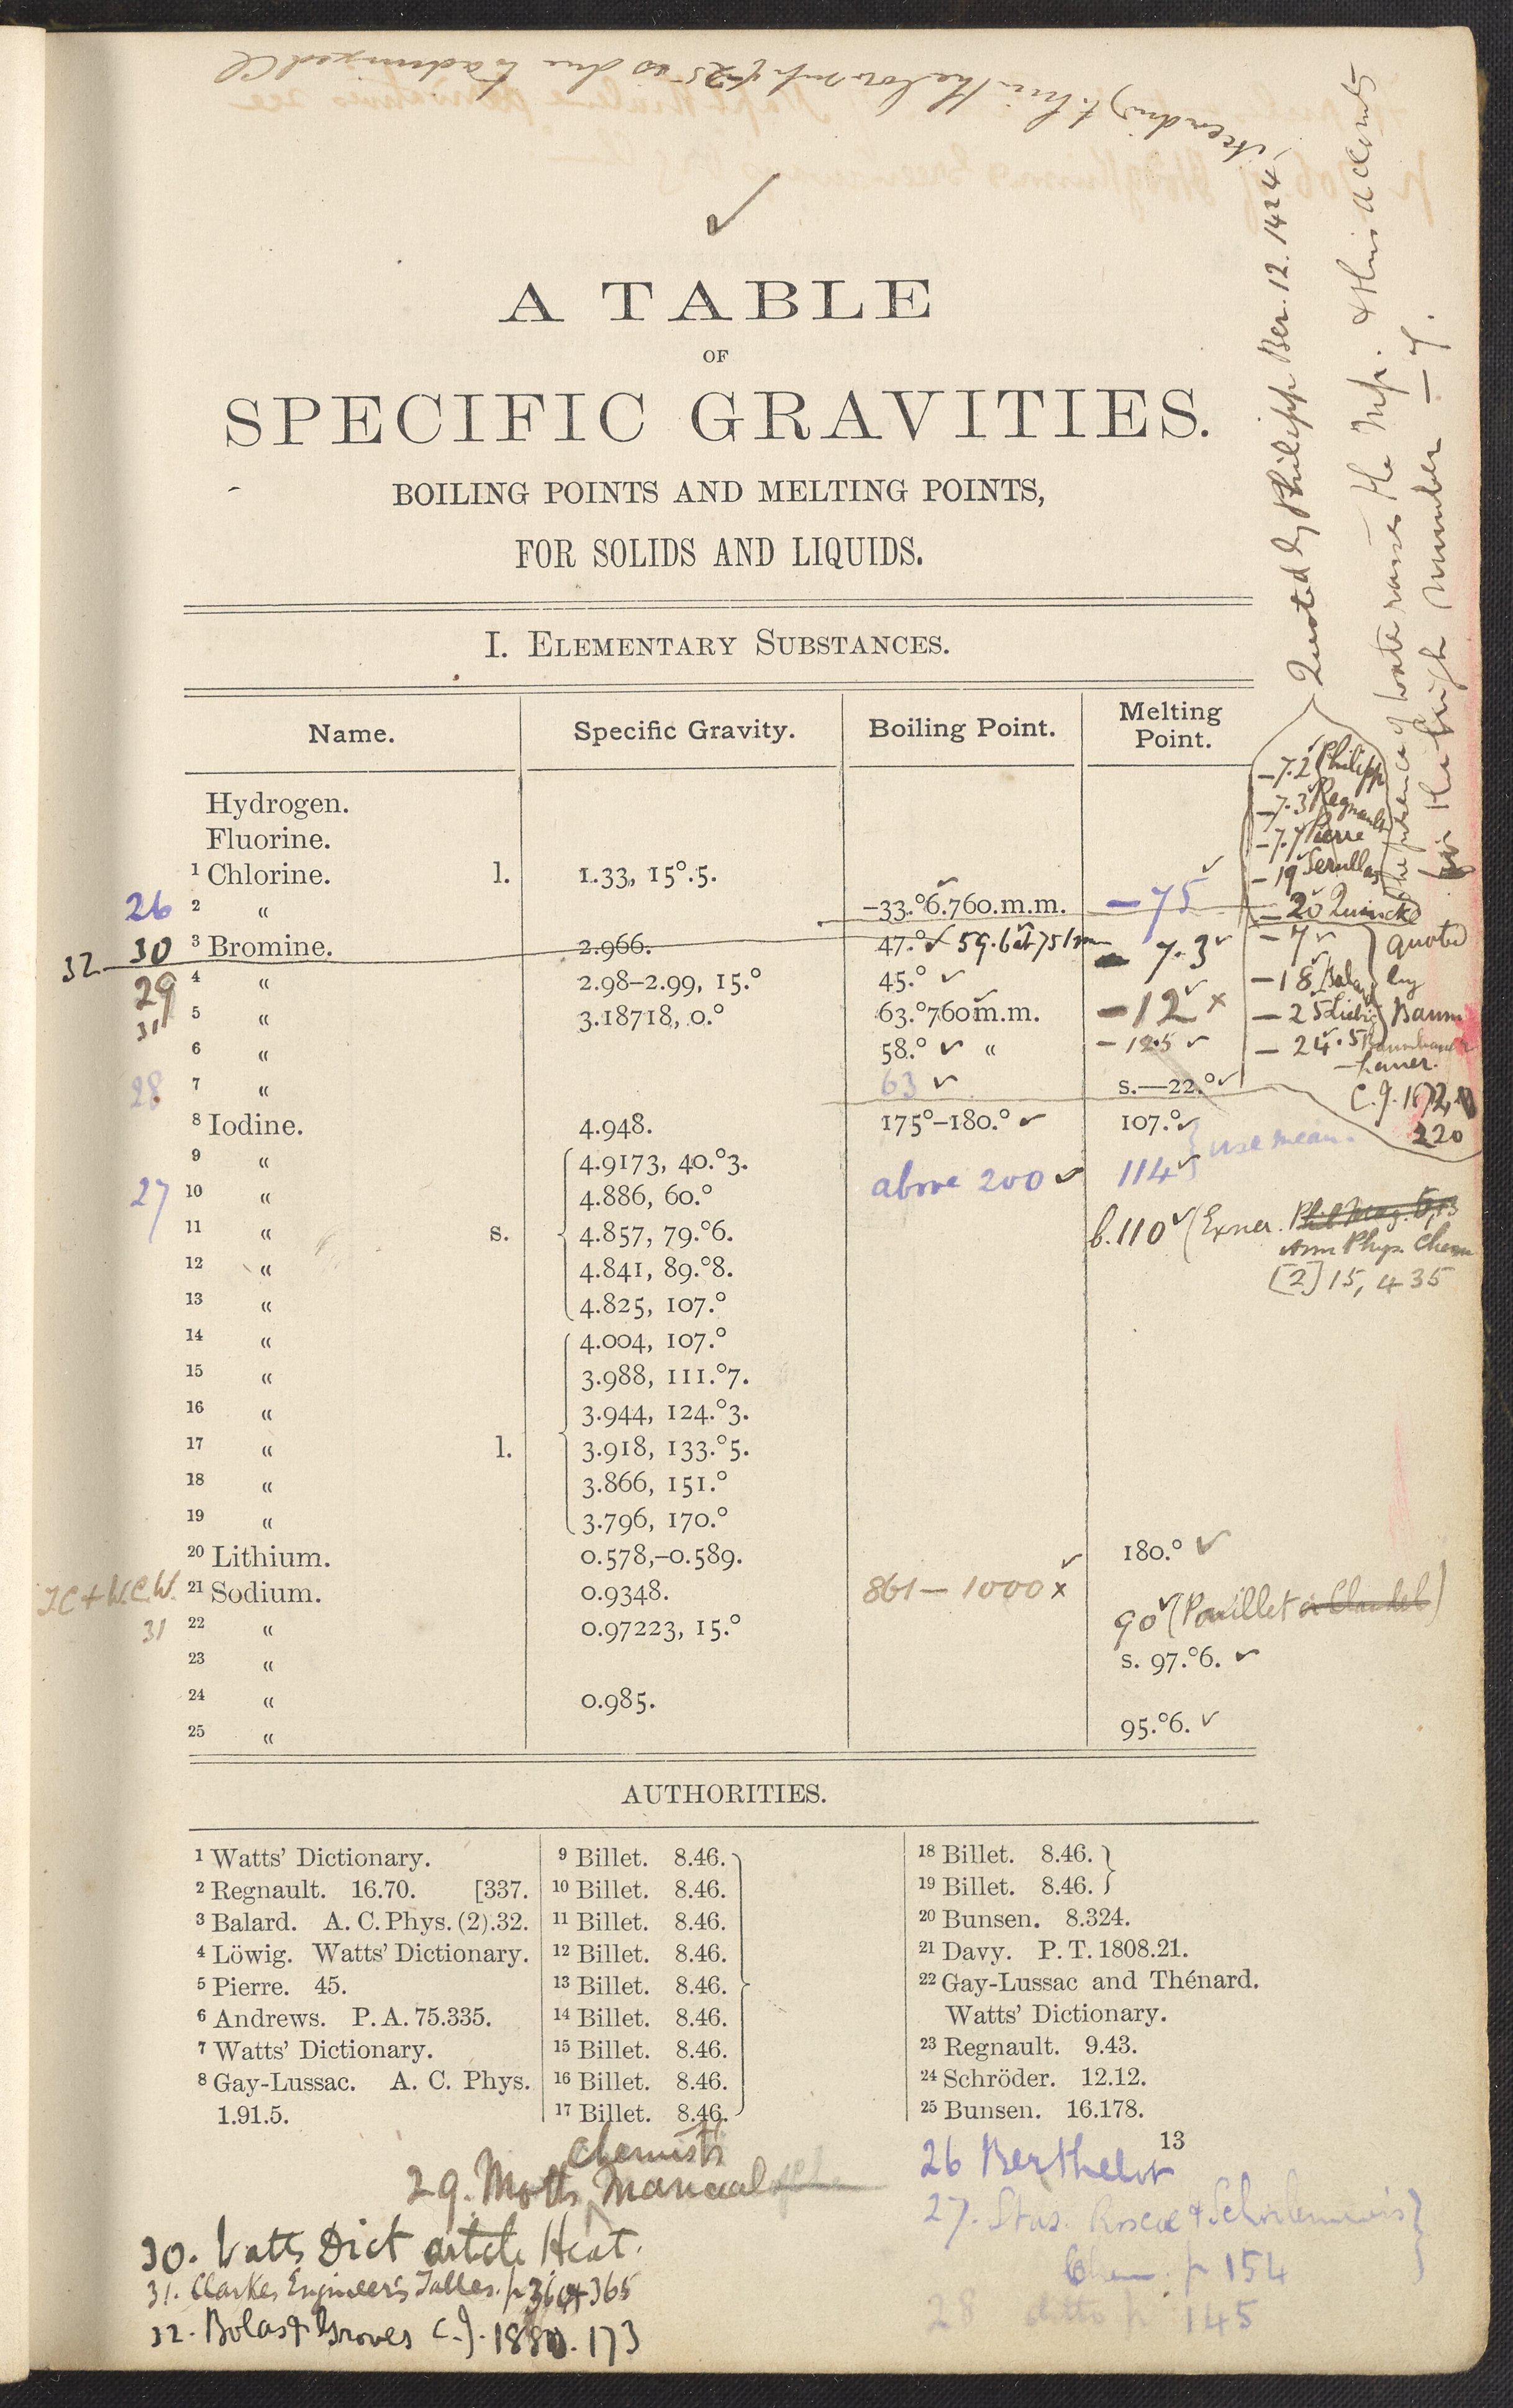 according to him the low mp of -25 is due to admixed Cl
✓
A TABLE
OF
SPECIFIC GRAVITIES.
BOILING POINTS AND MELTING POINTS,
FOR SOLIDS AND LIQUIDS.
Quoted by Philipp Ber. 12. 1424,
The presence of water raises the Mp. & this accounts
for the high number – 7.
I. ELEMENTARY SUBSTANCES.
Name. Specific Gravity. Boiling Point. Melting Point.
Hydrogen.
Fluorine.
1 Chlorine. l. 1.33, 15°.5.
26 2 “ –33.°6.760.m.m. –75
32 30 3 Bromine. 2.966. 47.° 59.6 at 751 mm – 7.3
29 4 “ 2.98–2.99, 15.° 45.° –12 x
31 5 “ 3.18718, 0.° 63.°760m.m. –12.5
6 “ 58.° “
28 7 “ 63 s.—22.°
–7.2 Philipp
–7.3 Regnault
–7.7 Pierre
–19 Serullas
–20 Quincke
–7
–18 Balard
–25 Liebig
quoted by Baum
–24.5 Baumhauer
–hauer.
C.J. 1872,
220
8 Iodine. 4.948. 175°–180.° 107.°
9 “ 4.9173, 40.°3. above 200 114 use mean.
27 10 “ 4.886, 60.°
11 “ s. 4.857, 79.°6. b.110 (Exner. Phil Mag. 5,13
Ann Phys Chem
[2] 15, 435
12 “ 4.841, 89.°8.
13 “ 4.825, 107.°
14 “ 4.004, 107.°
15 “ 3.988, 111.°7.
16 “ 3.944, 124.°3.
17 “ l. 3.918, 133.°5.
18 “ 3.866, 151.°
19 “ 3.796, 170.°
20 Lithium. 0.578,–0.589. 180.°
T.C + W.C.W. 21 Sodium. 0.9348. 861 – 1000 x 90 (Pouillet
31 22 “ 0.97223, 15.°
23 “ s. 97.°6.
24 “ 0.985.
25 “ 95.°6.
AUTHORITIES.
1 Watts' Dictionary.
2 Regnault. 16.70. [337.
3 Balard. A. C. Phys. (2).32.
4 Löwig. Watts' Dictionary.
5 Pierre. 45.
6 Andrews. P. A. 75.335.
7 Watts' Dictionary.
8 Gay-Lussac. A. C. Phys.
1.91.5.
9 Billet. 8.46.
10 Billet. 8.46.
11 Billet. 8.46.
12 Billet. 8.46.
13 Billet. 8.46.
14 Billet. 8.46.
15 Billet. 8.46.
16 Billet. 8.46.
17 Billet. 8.46.
18 Billet. 8.46.
19 Billet. 8.46.
20 Bunsen. 8.324.
21 Davy. P. T. 1808.21.
22 Gay-Lussac and Thénard.
Watts' Dictionary.
23 Regnault. 9.43.
24 Schröder. 12.12.
25 Bunsen. 16.178.
13
26 Berthelot
27. Stas. Roscoe & Schorlemmer's
Chem. p 154
28 ditto p. 145
Chemists
29. Motts Manual
30. Watts Dict article Heat.
31. Clarkes Engineer's Tables. p 364 & 365
32. Bolas & Groves C.J. 1880. 173